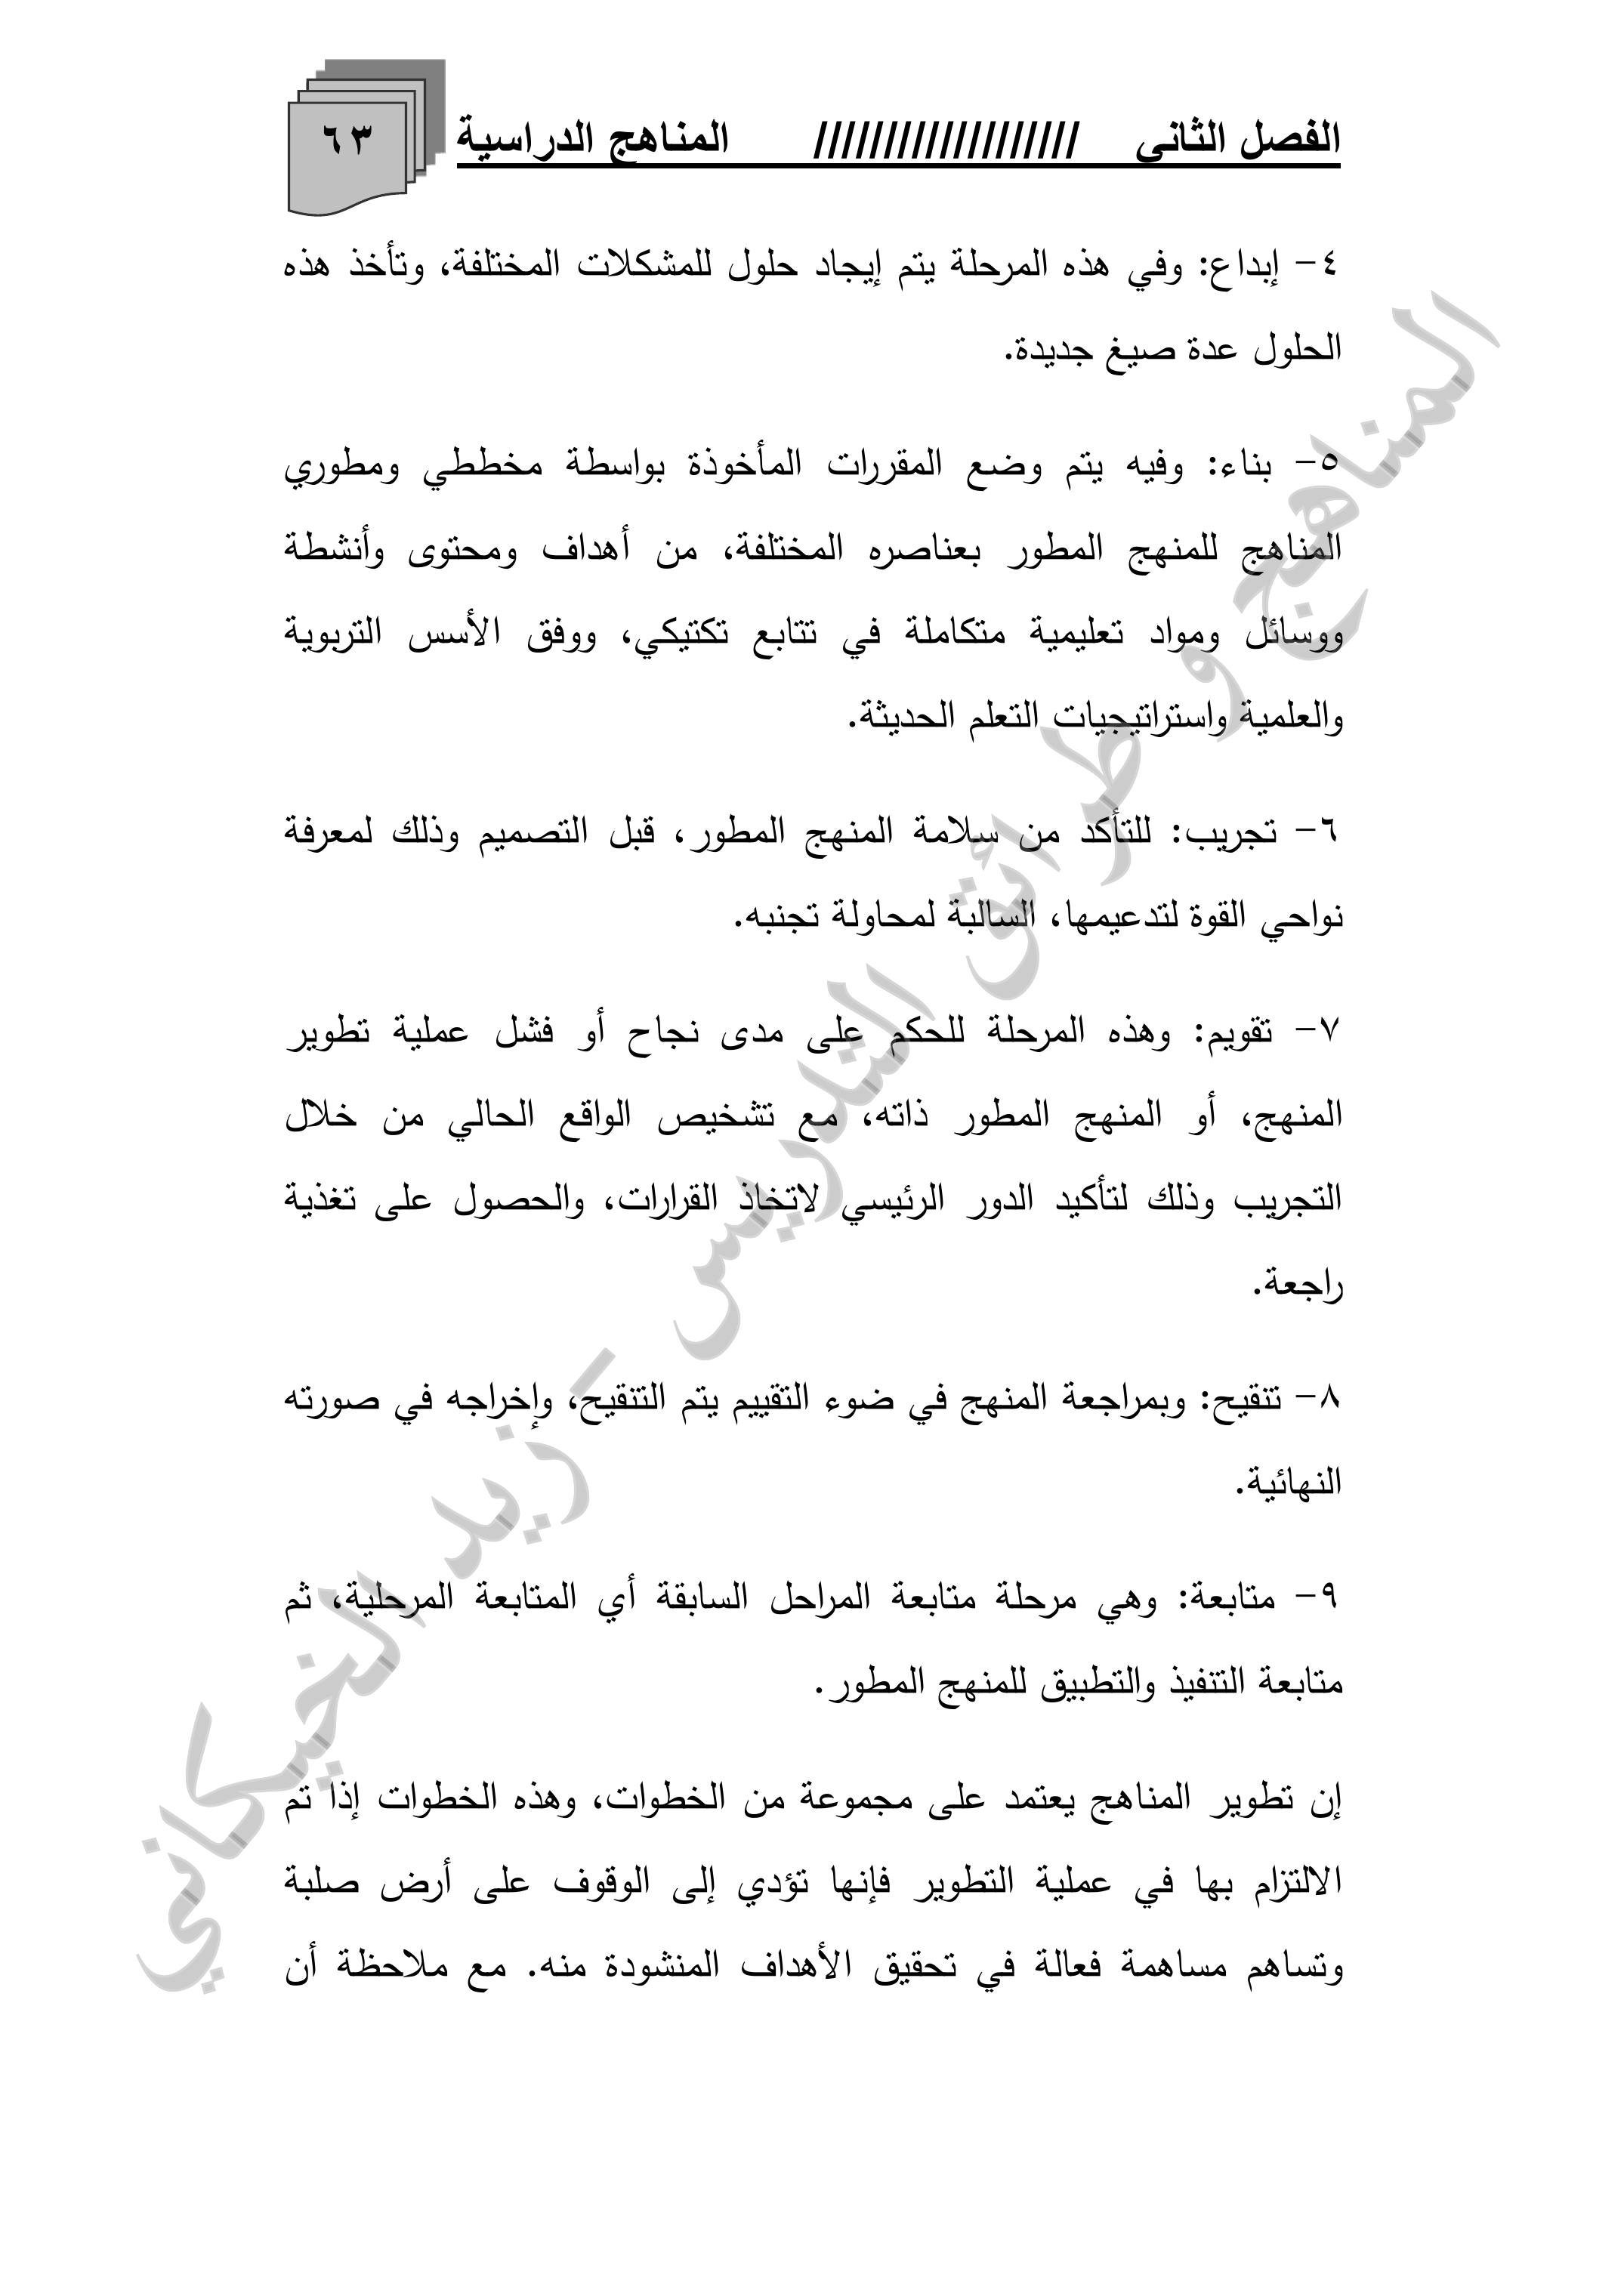 الفصل الثاني /////////////////// المناهج الدراسية ٦٣
٤- إبداع: وفي هذه المرحلة يتم إيجاد حلول للمشكلات المختلفة، وتأخذ هذه
الحلول عدة صيغ جديدة.
٥- بناء: وفيه يتم وضع المقررات المأخوذة بواسطة مخططي ومطوري
المناهج للمنهج المطور بعناصره المختلفة، من أهداف ومحتوى وأنشطة
ووسائل ومواد تعليمية متكاملة في تتابع تكتيكي، ووفق الأسس التربوية
والعلمية واستراتيجيات التعلم الحديثة.
٦- تجريب: للتأكد من سلامة المنهج المطور، قبل التصميم وذلك لمعرفة
نواحي القوة لتدعيمها، السالبة لمحاولة تجنبه.
٧- تقويم: وهذه المرحلة للحكم على مدى نجاح أو فشل عملية تطوير
المنهج، أو المنهج المطور ذاته، مع تشخيص الواقع الحالي من خلال
التجريب وذلك لتأكيد الدور الرئيسي لاتخاذ القرارات، والحصول على تغذية
راجعة.
٨- تنقيح: وبمراجعة المنهج في ضوء التقييم يتم التنقيح، وإخراجه في صورته
النهائية.
٩- متابعة: وهي مرحلة متابعة المراحل السابقة أي المتابعة المرحلية، ثم
متابعة التنفيذ والتطبيق للمنهج المطور.
إن تطوير المناهج يعتمد على مجموعة من الخطوات، وهذه الخطوات إذا تم
الالتزام بها في عملية التطوير فإنها تؤدي إلى الوقوف على أرض صلبة
وتساهم مساهمة فعالة في تحقيق الأهداف المنشودة منه. مع ملاحظة أن
المناهج و طرائق التدريس - زيد الخيكاني